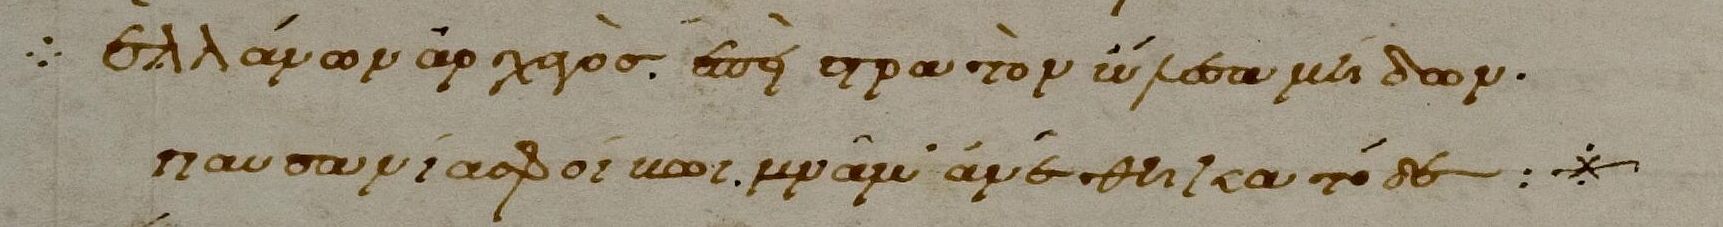 ∴ ἑλλάνων ἀρχηὸσ. ἐπὴ στρατὸν ὤλεσα μήδων.
παυσανίασ φοίκωι. μνᾶμ' ἀνέθηκα τόδε :